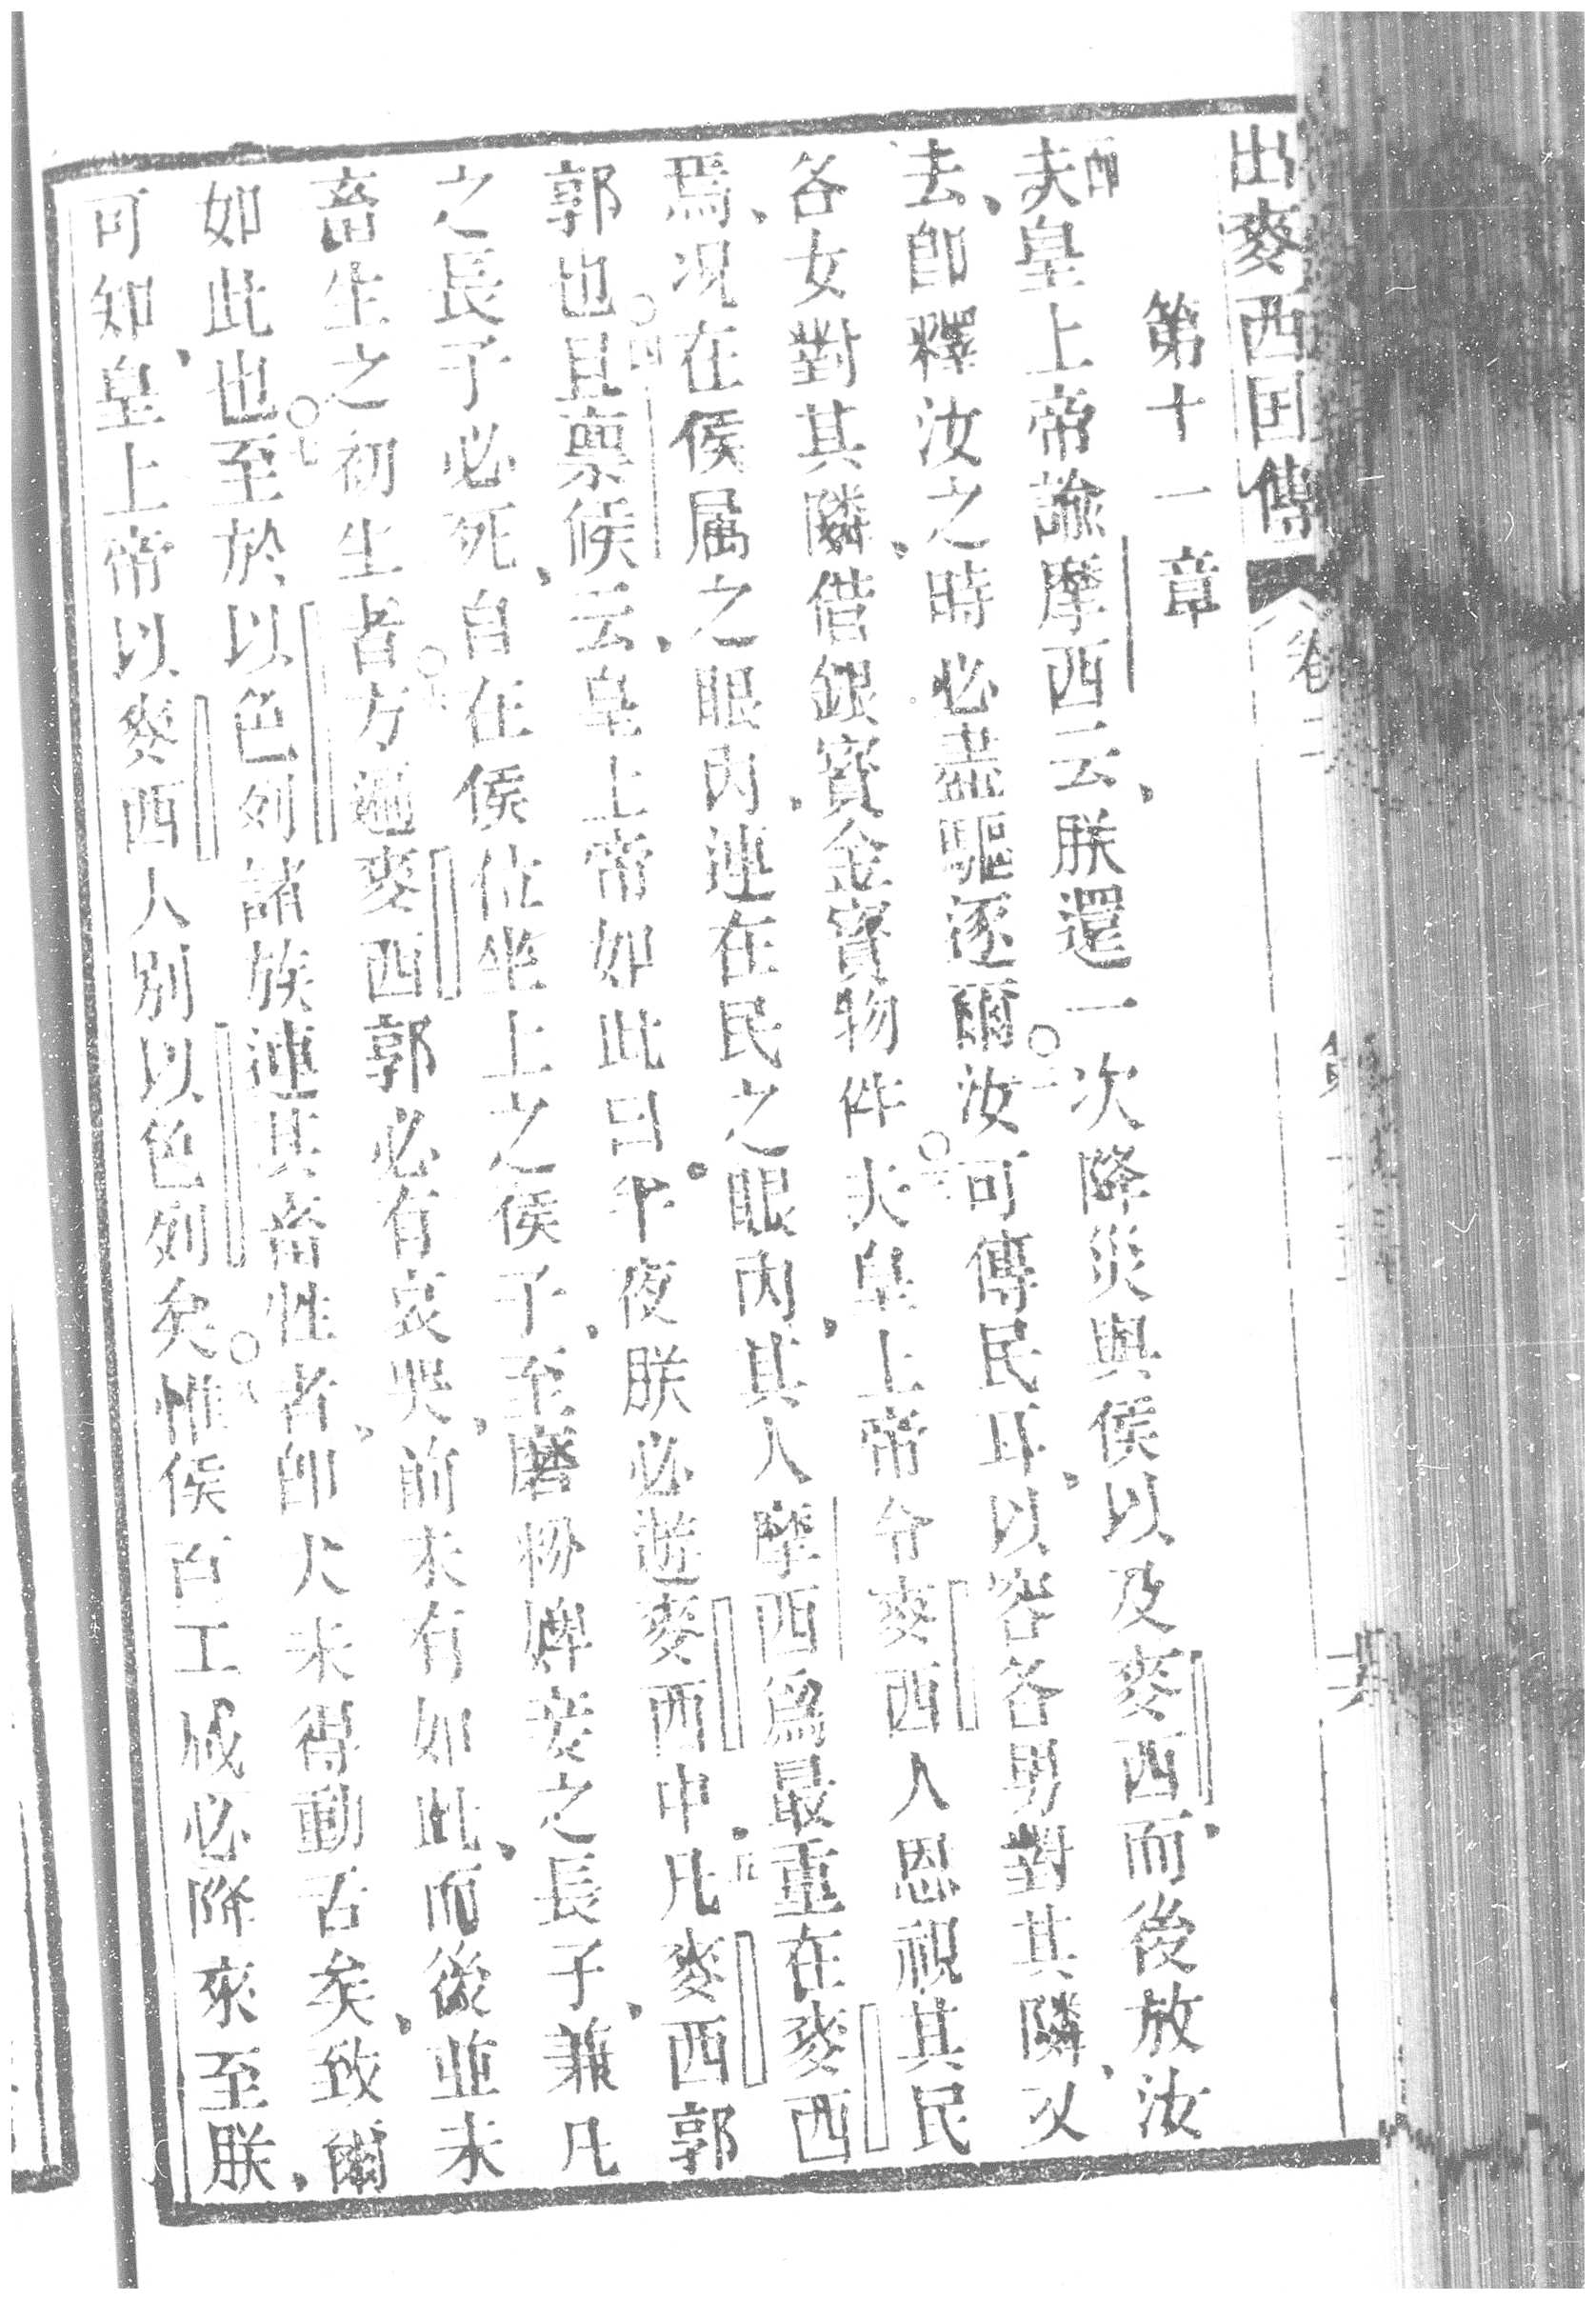 出麥西囯傳 卷二
第十一章
夫皇上帝諭摩西云、朕還一次降災與侯以及麥西、而後放汝
去、卽釋汝之時必盡驅逐爾○二汝可傳民耳、以容各男對其隣、又
各女對其隣、借銀寶金寶物件○三夫皇上帝令麥西人恩視其民
焉、况在侯属之眼內連在民之眼內、其人摩西爲最重在麥西
郭也○四且禀候云、皇上帝如此曰。半夜朕必遊麥西中、○五凡麥西郭
之長子必死、自在侯位坐上之侯子、至磨粉婢妾之長子、兼凡
畜生之初生者○六方遍麥西郭必有哀哭、前未有如此、而後並未
如此也○七至於以色列諸族連其畜牲者、卽犬未得動舌矣、致爾
可知、皇上帝以麥西人別以色列矣○八惟侯百工咸必降來至朕、